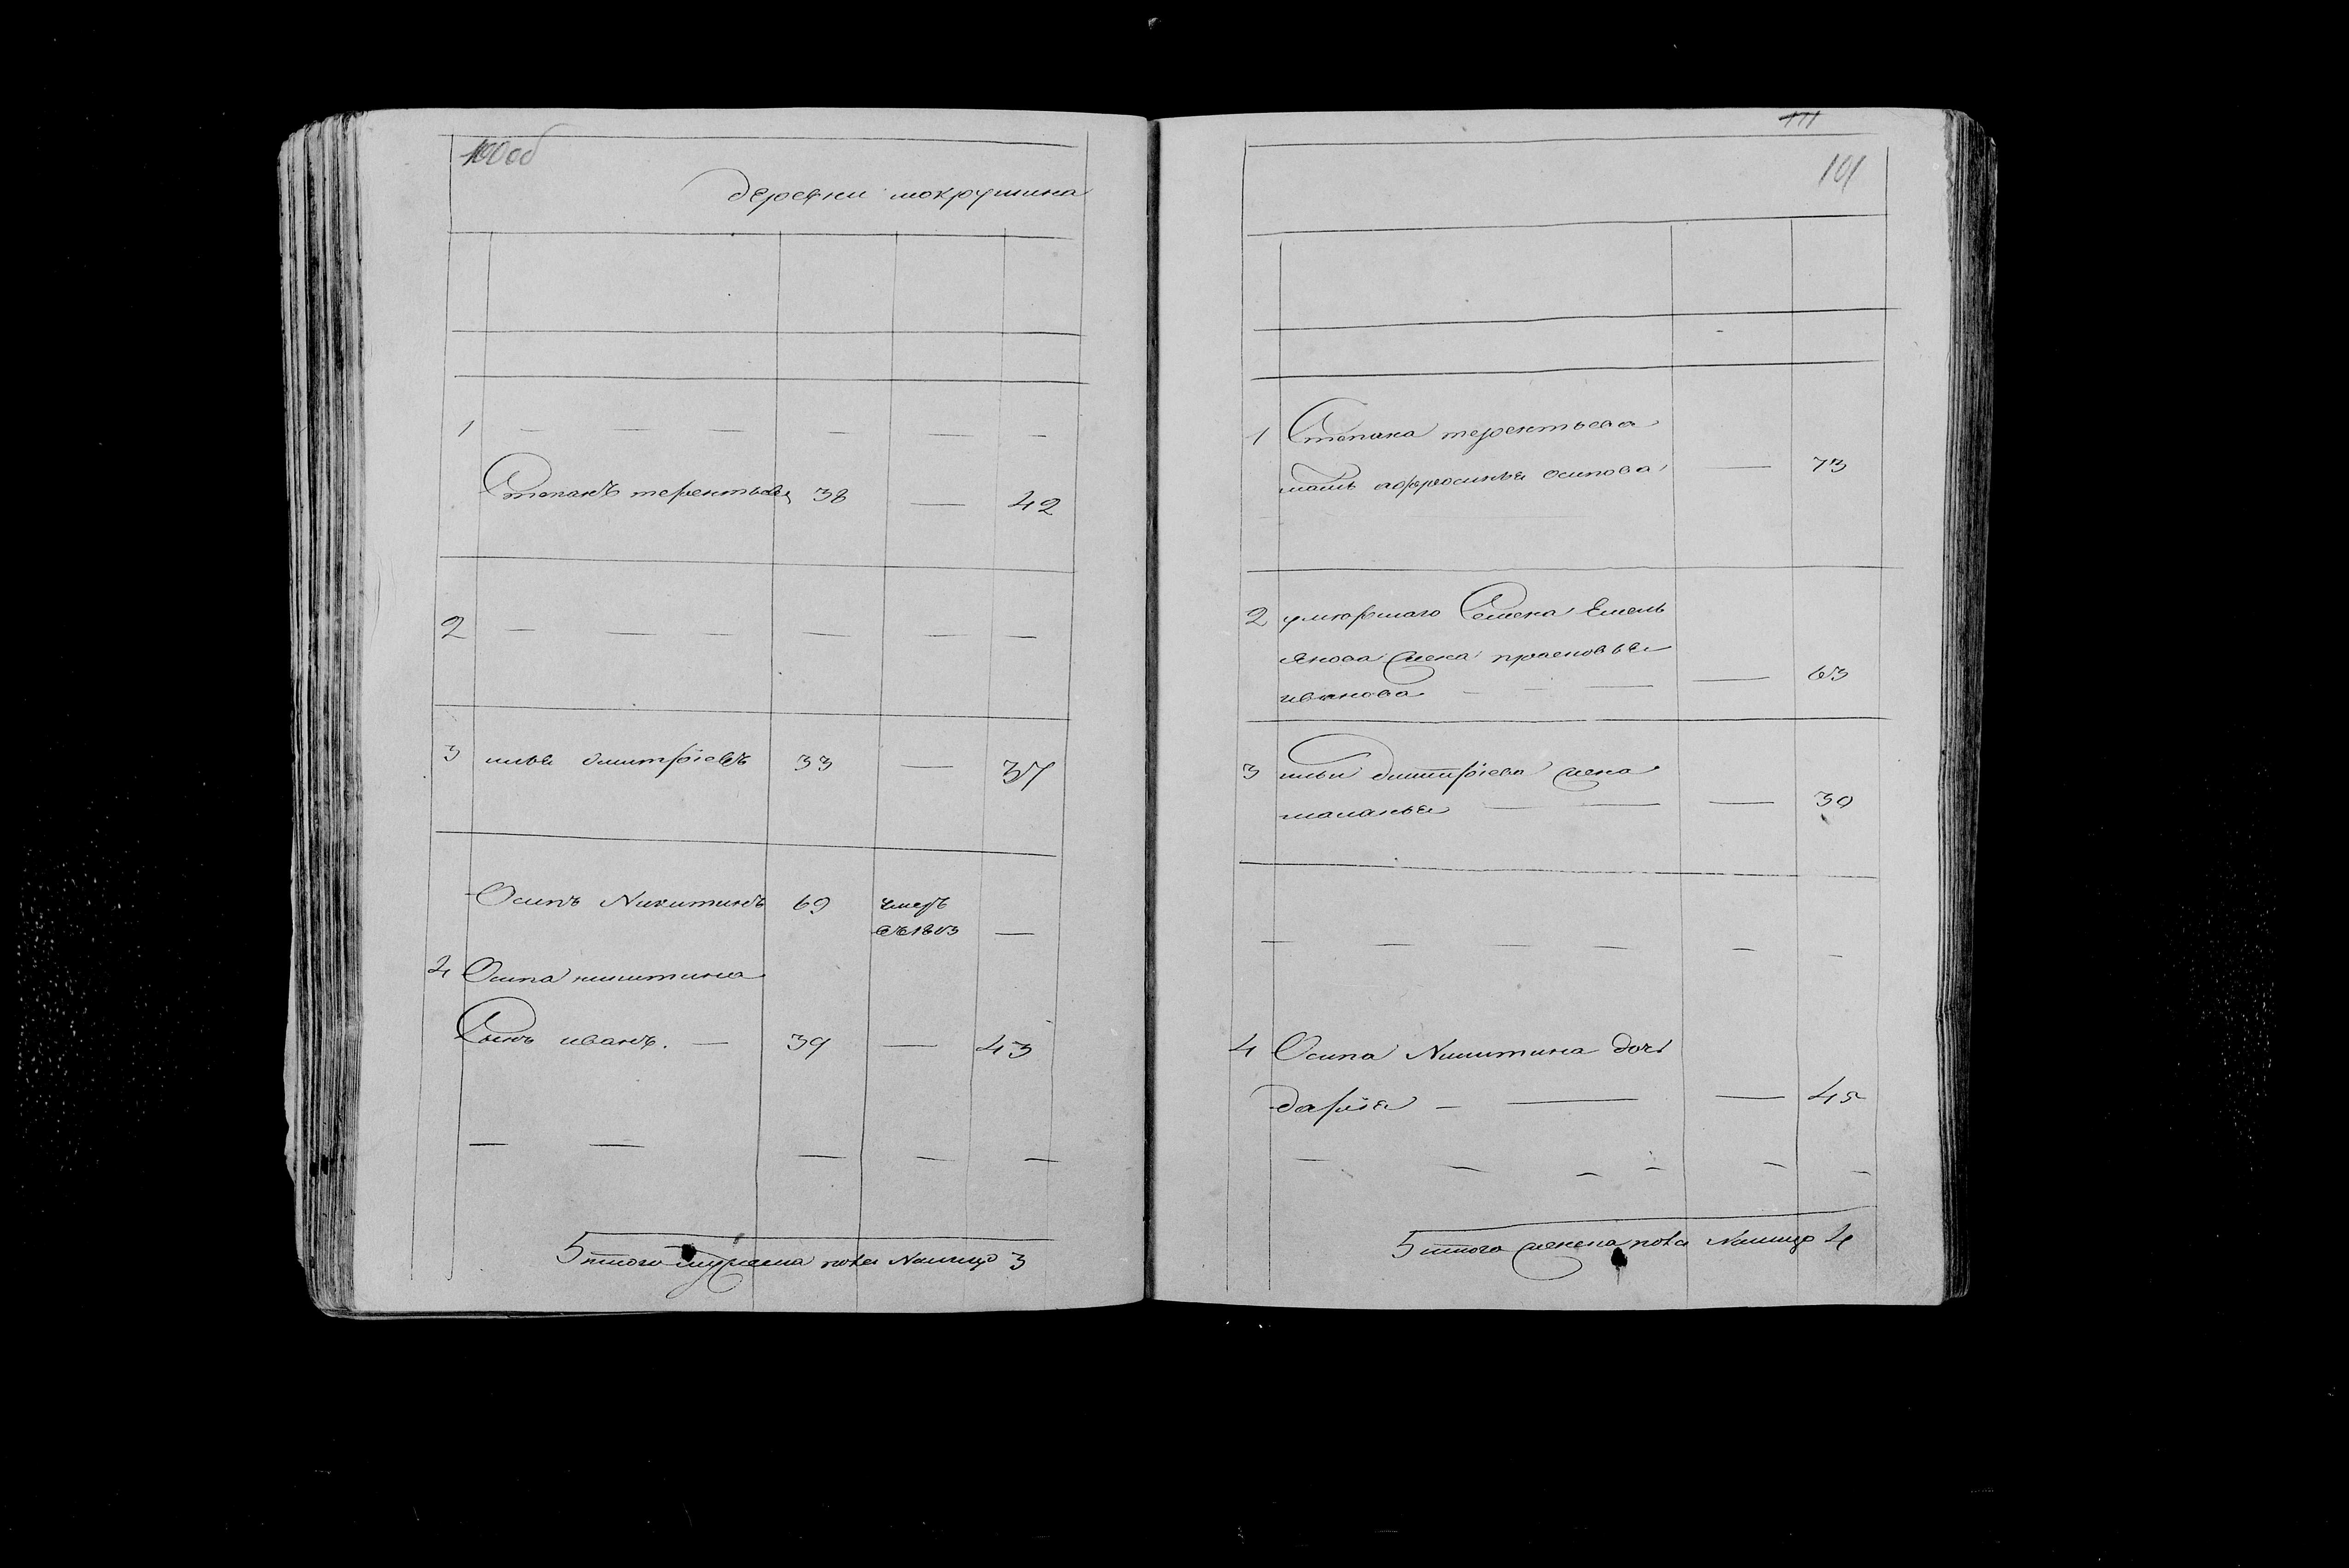 100 об
деревни мокрушина
1 — — — — — —
Степанъ терентьевъ 38 — 42
2 — — — — — —
3 илья дмитріевъ 33 — 37
Осипъ Никитинъ 69 умеръ
въ 1813 —
4 Осипа никитина
Сынъ иванъ. — 39 — 43
— — — — —
5 итого мужеска пола Налицо 3
111
101
1 Степана терентьева
мать афросинья осипова — 73
2 умершаго Семена Емель
янова жена прасковья
иванова — — — — 63
3 ильи дмитріева жена
маланья — — — 30
— — — — — —
4 Осипа Никитина дочь
дарія — — — 45
— — — — — —
5 итого женска пола Налицо 4